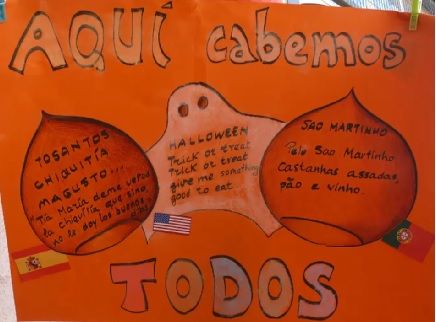 AQUÍ cabemos
TOSANTOS
CHIQUITÍA
MAGUSTO...
"Tía María deme usted
la chiquitía que sino
no le doy los buenos
días"
HALLOWEEN
Trick or treat
Trick or treat
give me something
good to eat
SAO MARTINHO
Pelo Sao Martinho
Castanhas assadas,
pão e vinho.
TODOS